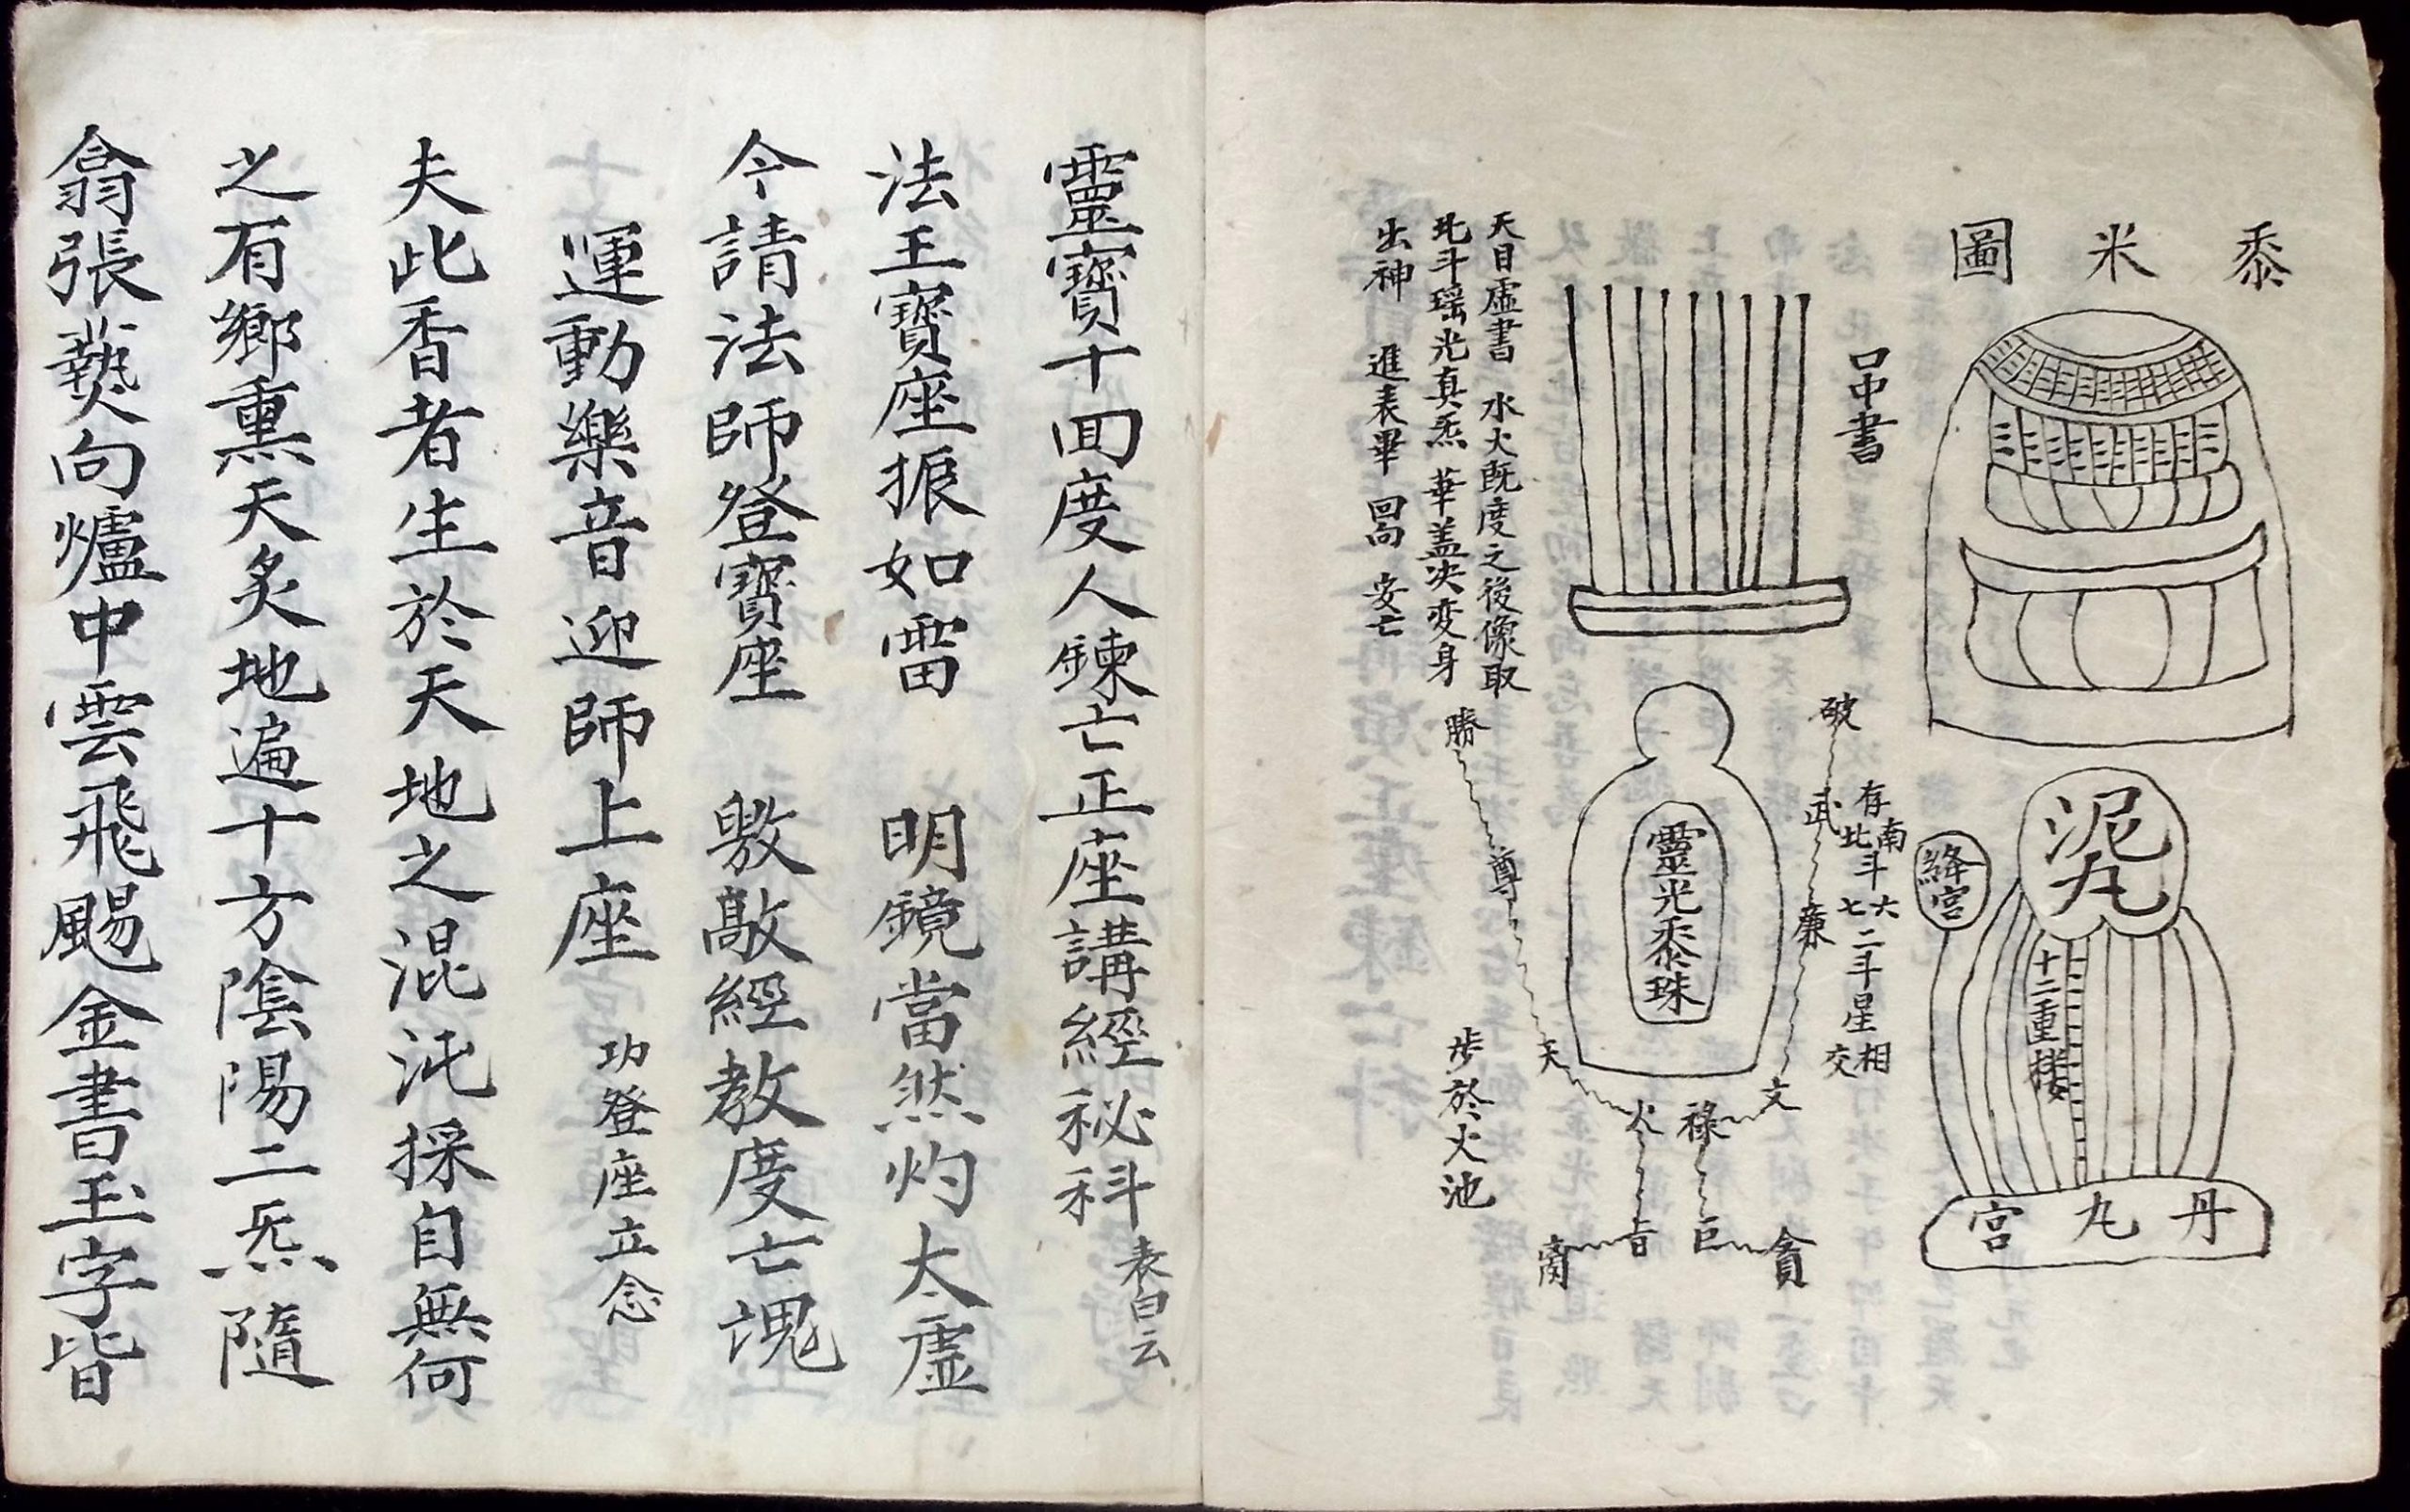 黍米圖
口中書
天目虛書 水火既度之後像取
北斗瑶光真炁 華盖决变身
出神 進表畢 回向 安亡
泥丸
絳宮
十二重楼
丹丸宮
存南北斗六七二斗星相交
破
武
廉
文
祿
巨
貪
靈光黍珠
勝
尊
天
火
音
步於火池
靈寶十囬度人錬亡正座講經秘科 表白云
法王寶座振如雷 明鏡當然灼太虛
今請法師登寶座 敷敲經教度亡魂
運動樂音迎師上座 功登座立念
夫此香者生於天地之混沌採自無何
之有鄉熏天炙地遍十方陰陽二炁隨
翕張爇向爐中雲飛颺金書玉字皆